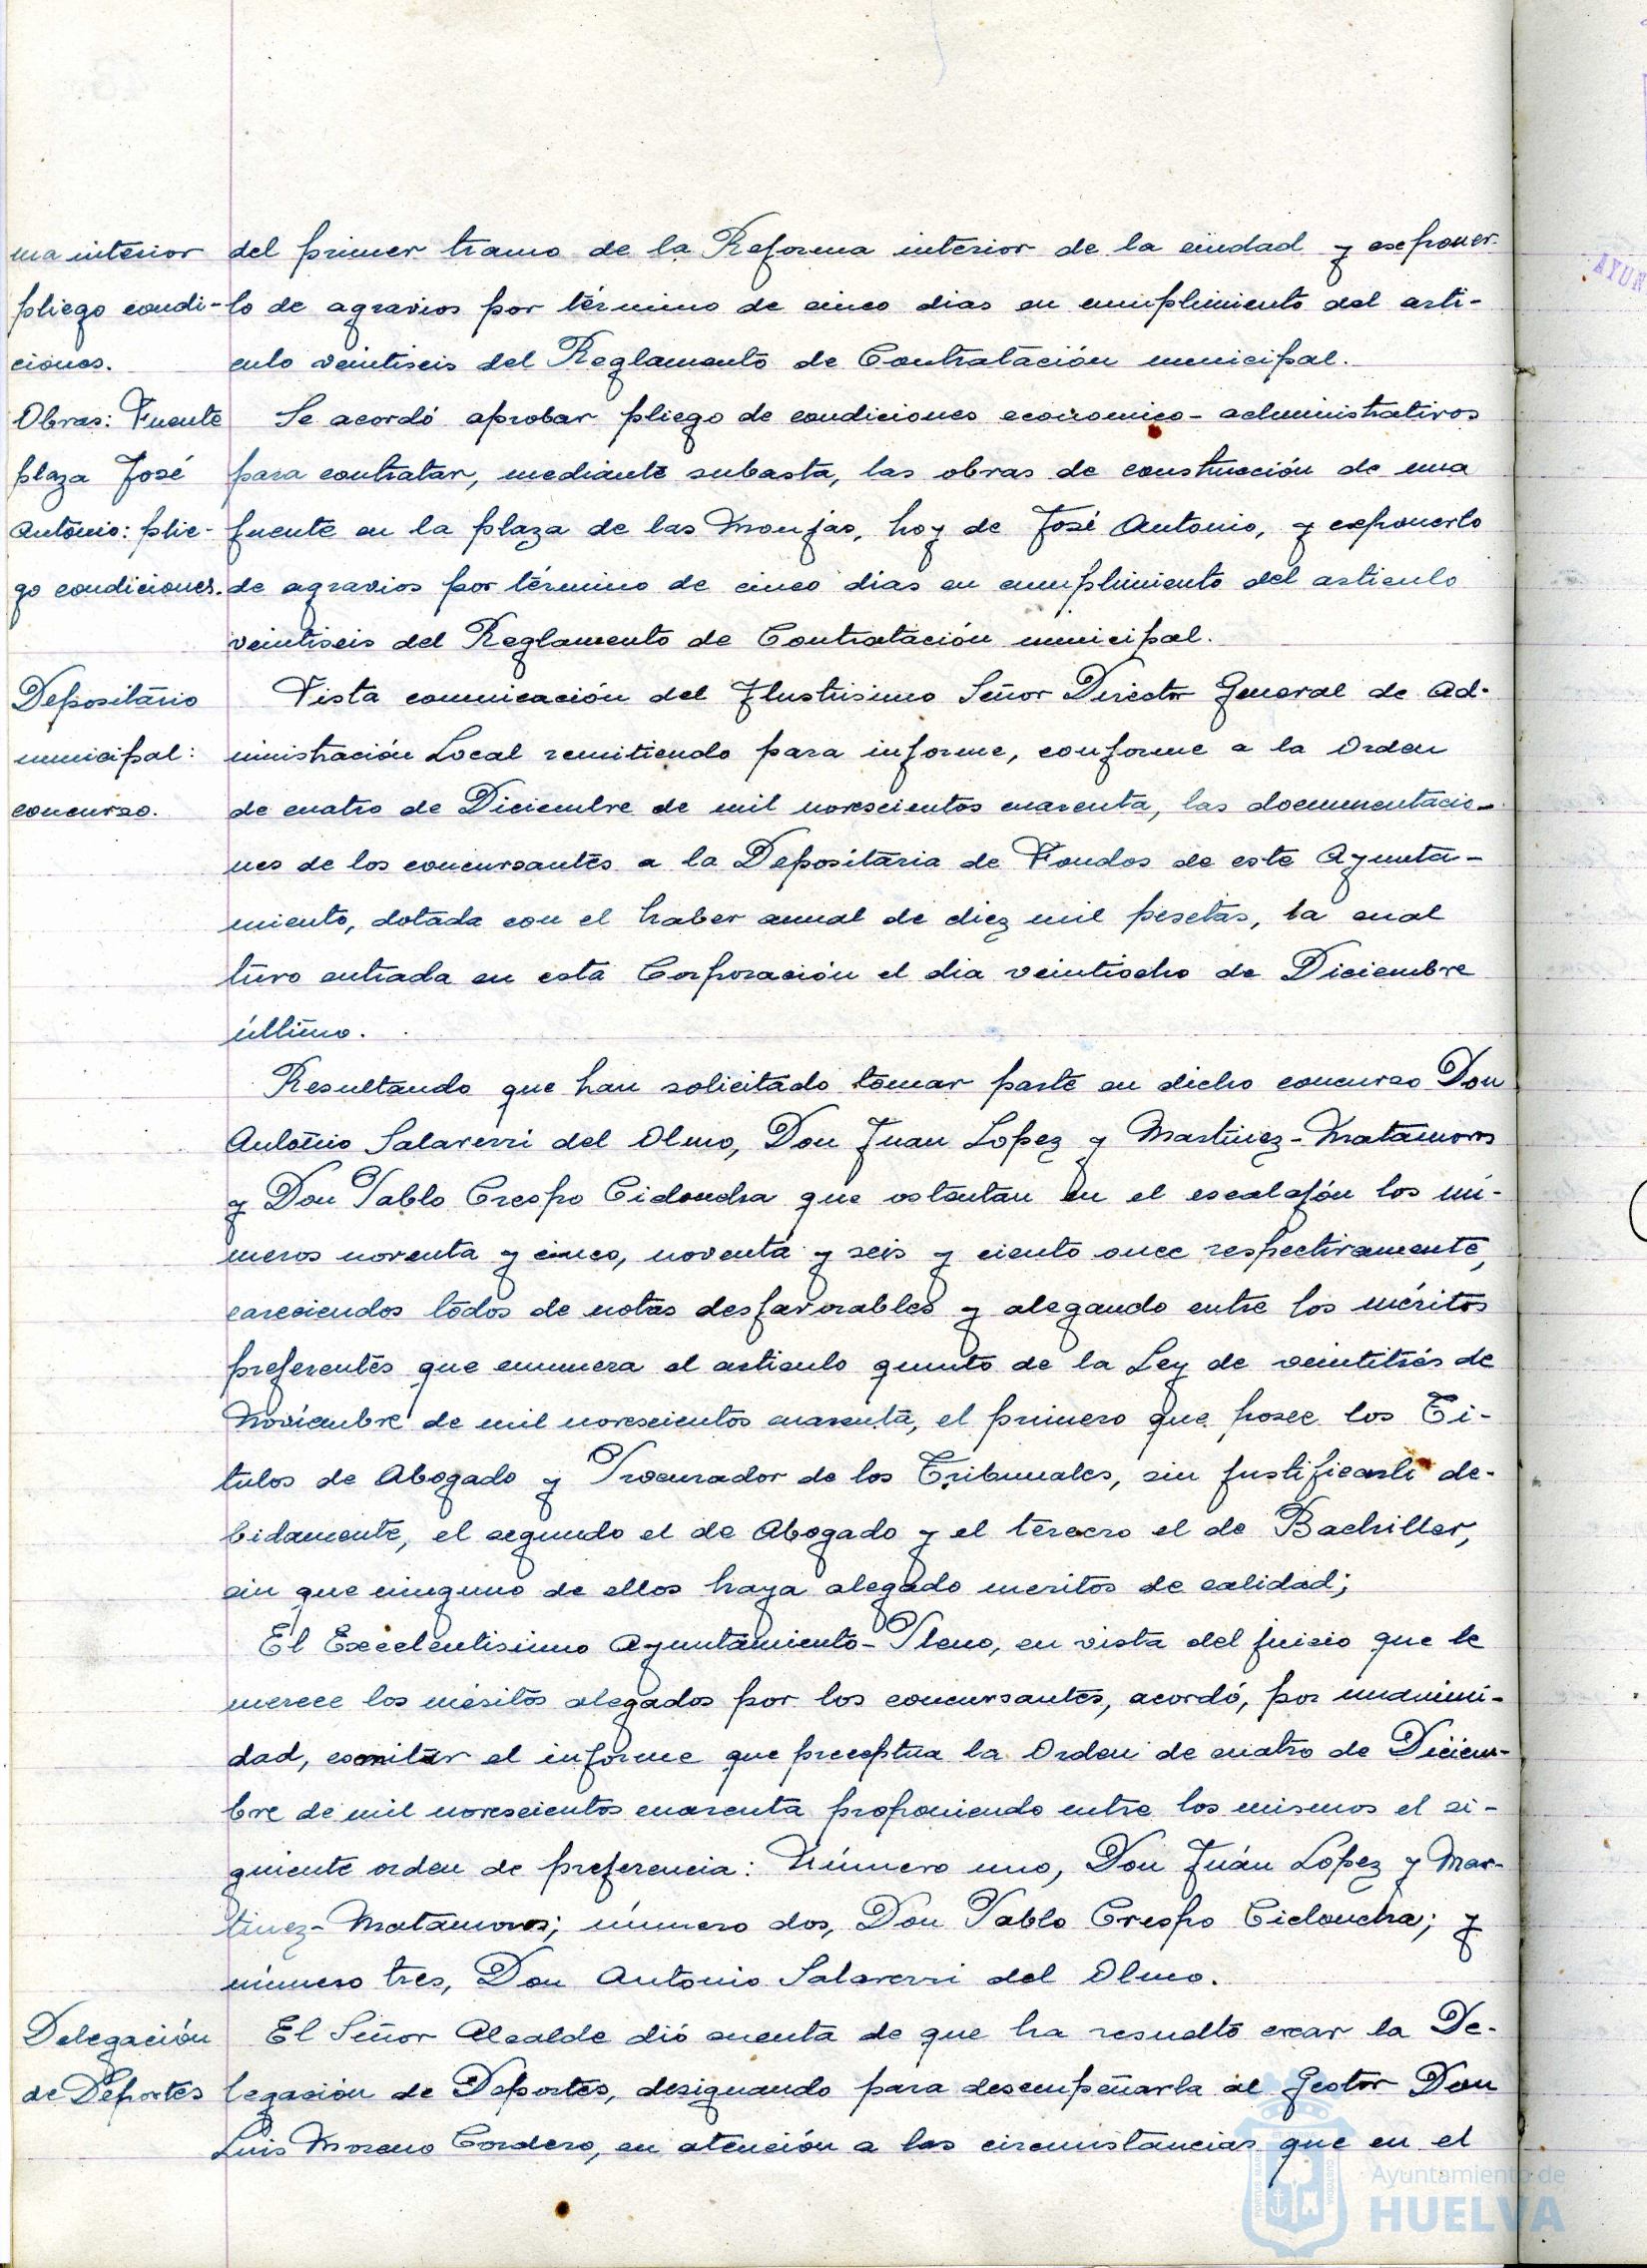 ma interior
pliego condi-
ciones.
del primer tramo de la Reforma interior de la ciudad y exponer-
lo de agravios por término de cinco dias en cumplimiento del arti-
culo veintiseis del Reglamento de Contratación municipal.
Obras: Fuente
plaza José
Antonio: plie-
go condiciones.
Se acordó aprobar pliego de condiciones económico-administrativos
para contratar, mediante subasta, las obras de construcción de una
fuente en la plaza de las Monjas, hoy de José Antonio, y exponerlo
de agravios por término de cinco dias en cumplimiento del articulo
veintiseis del Reglamento de Contratación municipal.
Depositario
municipal:
concurso.
Vista comunicación del Ilustrisimo Señor Director General de Ad-
ministración Local remitiendo para informe, conforme a la Orden
de cuatro de Diciembre de mil novescientos cuarenta, las documentacio-
nes de los concursantes a la Depositaria de Fondos de este Ayunta-
miento, dotada con el haber anual de diez mil pesetas, la cual
tuvo entrada en esta Corporación el dia veintiocho de Diciembre
último.
Resultando que han solicitado tomar parte en dicho concurso Don
Antonio Salaverri del Olmo, Don Juan Lopez y Martinez-Matamoros
y Don Pablo Crespo Cidoncha que ostentan en el escalafón los nú-
meros noventa y cinco, noventa y seis y ciento once respectivamente,
careciendos todos de notas desfavorables y alegando entre los méritos
preferentes que enumera el articulo quinto de la Ley de veintitrés de
Noviembre de mil novescientos cuarenta, el primero que posee los Ti-
tulos de Abogado y Procurador de los Tribunales, sin justificarlo de-
bidamente, el segundo el de Abogado y el tercero el de Bachiller,
sin que ninguno de ellos haya alegado meritos de calidad;
El Excelentisimo Ayuntamiento-Pleno, en vista del juicio que le
merece los méritos alegados por los concursantes, acordó, por unanimi-
dad, emitir el informe que preceptua la Orden de cuatro de Diciem-
bre de mil novescientos cuarenta proponiendo entre los mismos el si-
guiente orden de preferencia: Número uno, Don Juán Lopez y Mar-
tinez-Matamoros; número dos, Don Pablo Crespo Cidoncha; y
número tres, Don Antonio Salaverri del Olmo.
Delegación
de Deportes
El Señor Alcalde dió cuenta de que ha resuelto crear la De-
legación de Deportes, designando para desempeñarla al Gestor Don
Luis Moreno Cordero, en atención a las circunstancias que en el
Ayuntamiento de
HUELVA
AYUN